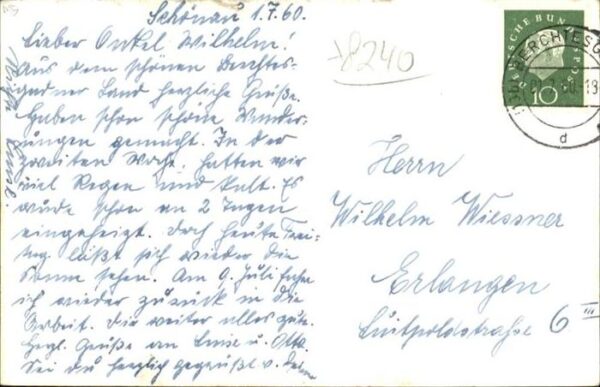 Schönau 1.7.60.
Lieber Onkel Wilhelm!
Aus dem schönen Berchtes-
gadner Land herzliche Grüße.
Haben schon schöne Wander-
ungen gemacht. In der
zweiten Woch. hatten wir
viel Regen und kalt. Es
wurde schon an 2 Tagen
eingeheizt. Doch heute Frei-
tag läßt sich wieder die
Sonne sehen. Am 9. Juli fahre
ich wieder zurück in die
Arbeit. Dir weiter alles gute.
Hrzl. Grüße an Luise u. Otto.
Sei du herzlich gegrüßt v. deine
8240
DEUTSCHE BUNDESPOST
10
BERCHTESG
d
Herrn
Wilhelm Wiessner
Erlangen
Luitpoldstraße 6 III